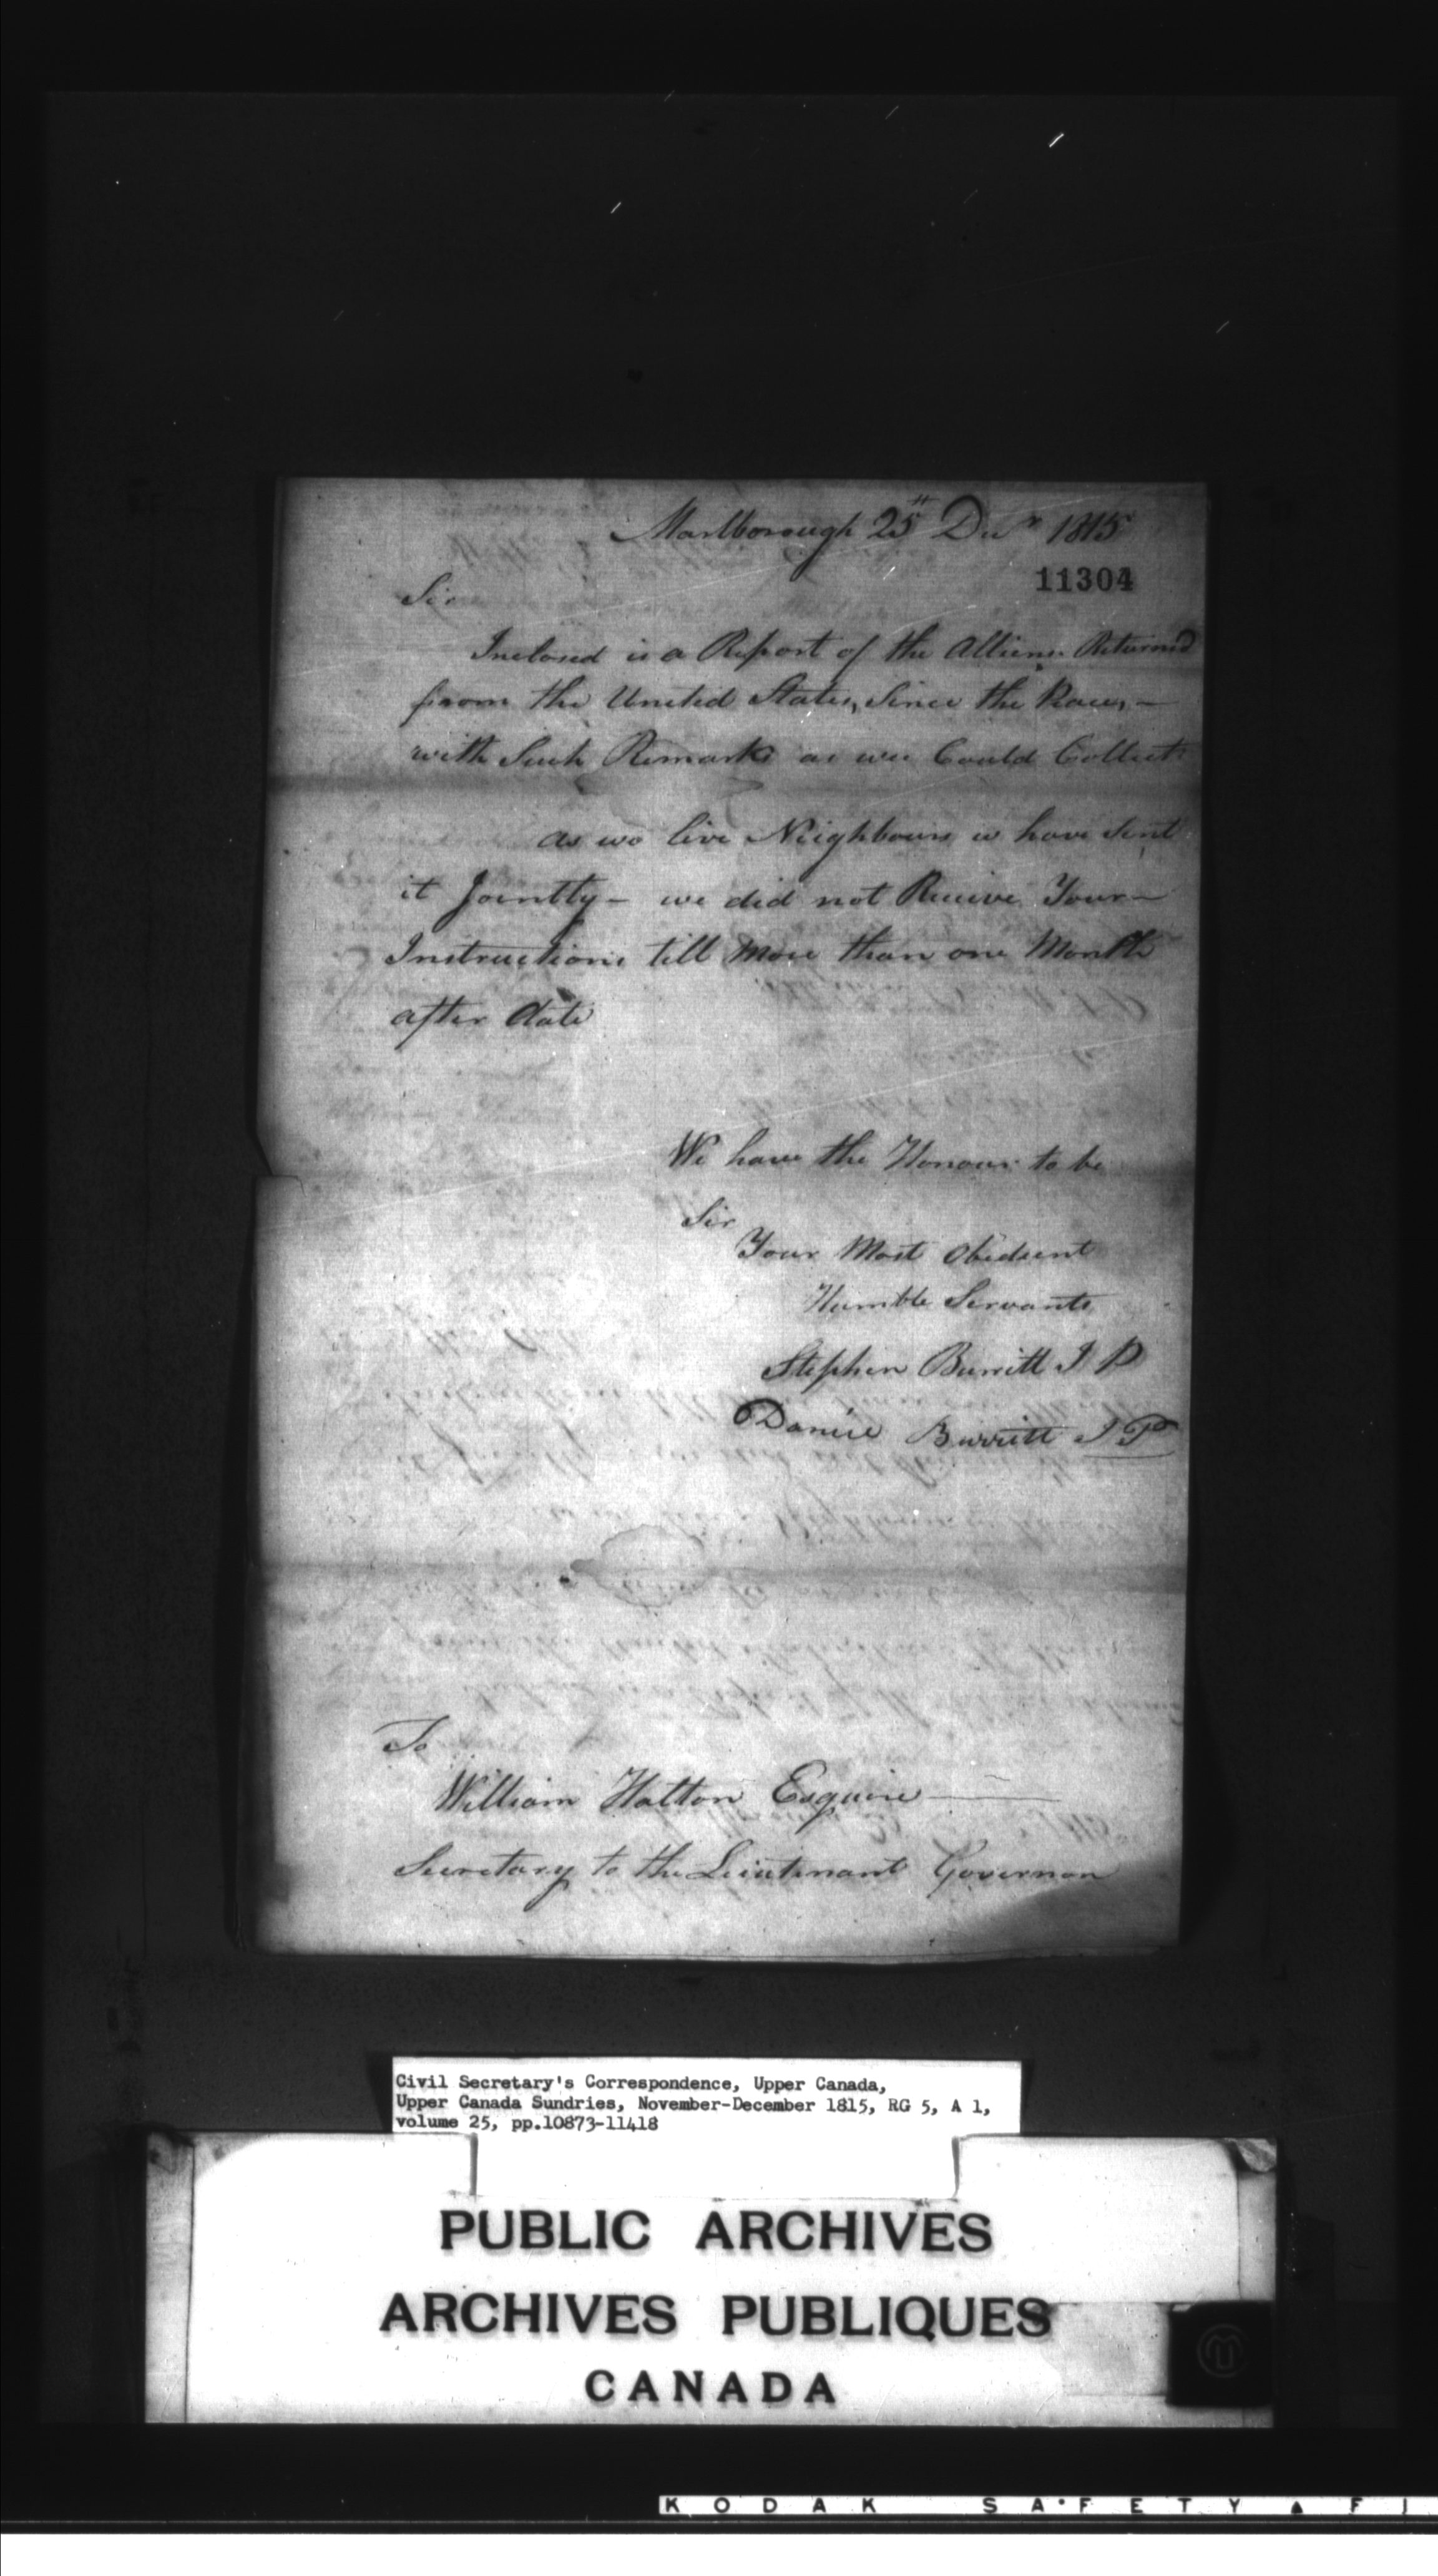 Marlborough 25th Decr 1815
11304
Sir
Inclosed is a Report of the Alliens Returned
from the United States, Since the Peace, —
with Such Remarks as we Could Collect
as we live Neighbours we have Sent
it Jointly — we did not Receive Your —
Instructions till More than one Month
after date
We have the Honour to be
Sir
Your Most Obedient
Humble Servants
Stephen Burritt J P
Daniel Burritt J P
To
William Halton Esquire —
Secretary to the Lieutenant Governor
Civil Secretary's Correspondence, Upper Canada,
Upper Canada Sundries, November-December 1815, RG 5, A 1,
volume 25, pp.10873-11418
PUBLIC ARCHIVES
ARCHIVES PUBLIQUES
CANADA
KODAK SAFETY ▲ FI